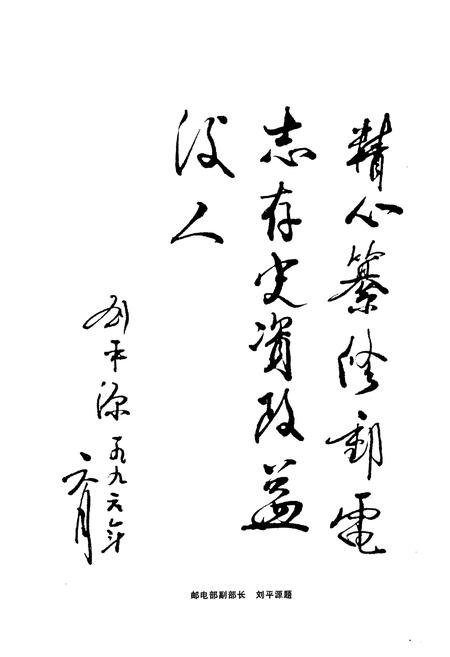 精心纂修郵電
志存史资政益
后人
刘平源一九九六年
六月
邮电部副部长 刘平源题